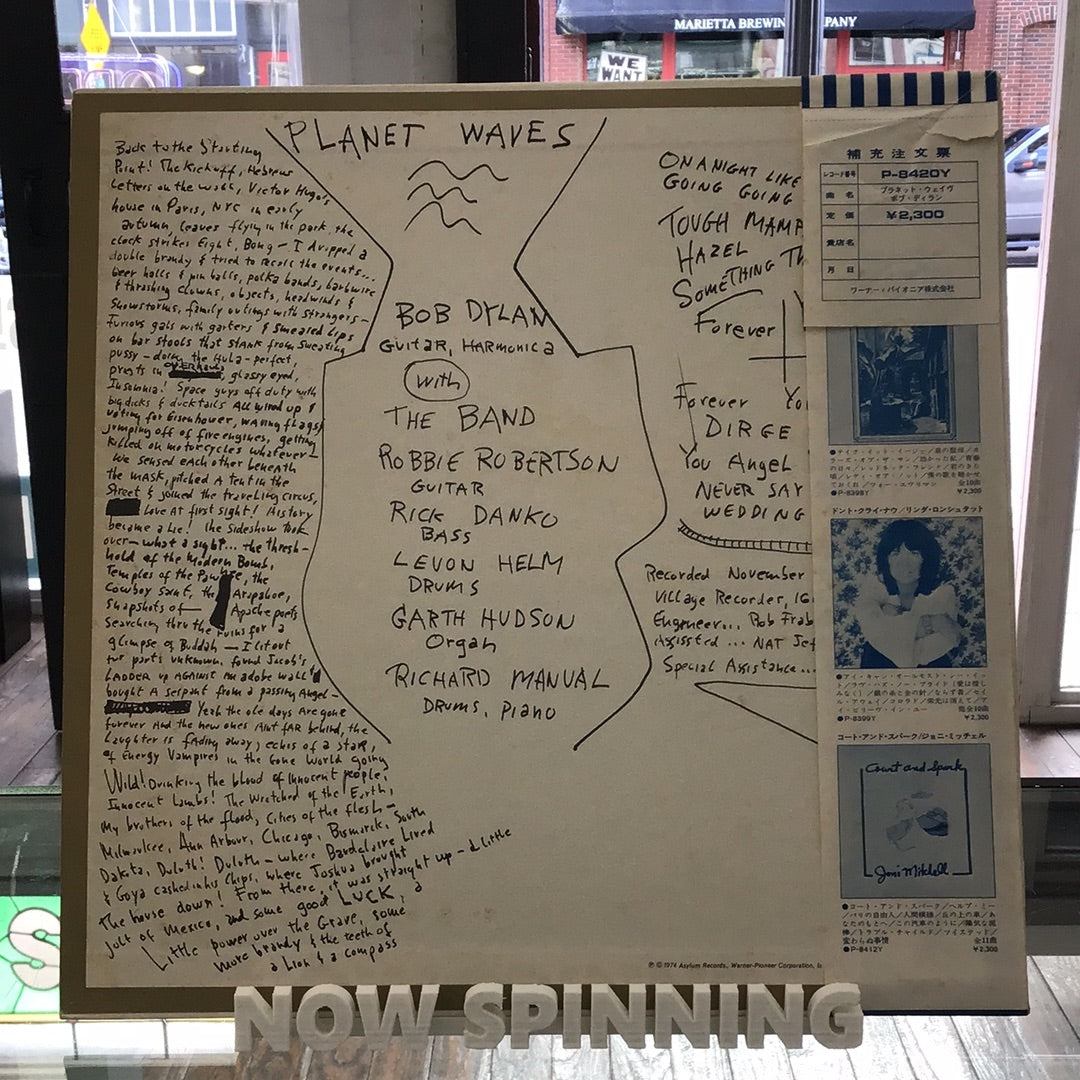 MARIETTA BREWING COMPANY
WE
WANT
PLANET WAVES
Back to the Starting
Point! The Kickoff, Hebrew
Letters on the wall, Victor Hugo's
house in Paris, NYC in early
autumn, leaves flying in the park, the
clock strikes Eight, Bong — I dropped a
double brandy & tried to recall the events...
beer halls & pin balls, polka bands, barbwire
& thrashing clowns, objects, headwinds &
Snowstorms, family outings with strangers —
Furious gals with garters & smeared Lips
on bar stools that stank from sweating
pussy — doing the Hula — perfect,
priests in overhauls, glassy eyed,
Insomnia! Space guys off duty with
big dicks & ducktails All wired up &
voting for Eisenhower, waving flags &
jumping off of fire engines, getting
killed on motorcycles whatever —
We sensed each other beneath
the mask, pitched a tent in the
Street & joined the traveling circus,
Love at first sight! History
became a Lie! the sideshow took
over — what a sight... the thresh-
hold of the Modern Bomb,
Temples of the Pawnee, the
Cowboy saint, the Arapahoe,
snapshots of — Apache poets
searching thru the ruins for a
glimpse of Buddah — I lit out
for parts unknown, found Jacob's
LADDER up AGAINST an adobe wall &
bought a serpent from a passing Angel —
Yeah the ole days Are gone
forever And the new ones Aint fAR behind, the
Laughter is fAding away, echos of a staR,
of Energy Vampires in the Gone World going
Wild! Drinking the blood of innocent people,
Innocent Lambs! The Wretched of the Earth,
My brothers of the flood, Cities of the flesh —
Milwaukee, Ann Arbour, Chicago, Bismarck, South
Dakota, Duluth! Duluth — where Baudelaire Lived
& Goya cashed in his Chips, where Joshua brought
the house down! From there, it was straight up — a little
jolt of Mexico, and some good LUCK, a
Little power over the Grave, some
more brandy & the teeth of
a Lion & a compass
BOB DYLAN
GUITAR, HARMONICA
with
THE BAND
ROBBIE ROBERTSON
GUITAR
RICK DANKO
BASS
LEVON HELM
DRUMS
GARTH HUDSON
Organ
RICHARD MANUAL
DRUMS, PIANO
ON A NIGHT LIKE
GOING GOING
TOUGH MAMA
HAZEL
SOMETHING TH
Forever
Forever Yo
DIRGE
You Angel
NEVER SAY
WEDDING
Recorded November
Village Recorder, 16
Engineer... Rob Frab
Assissted ... NAT Jef
Special Assistance...
℗ © 1974 Asylum Records, Warner-Pioneer Corporation,
補充注文票
レコード番号 P-8420Y
曲名 プラネット・ウェイヴ
ボブ・ディラン
定価 ¥2,300
貴店名
月日
ワーナー・パイオニア株式会社
●P-8398Y ¥2,300
ドント・クライ・ナウ/リンダ・ロンシュタット
●P-8399Y ¥2,300
コート・アンド・スパーク/ジョニ・ミッチェル
Court and Spark
Joni Mitchell
●コート・アンド・スパーク/ヘルプ・ミー
/パリの自由人/人間模様/丘の上の車/あ
なたのもとへ/この汽車のように/陽気な泥
棒/トラブル・チャイルド/ツイステッド/
変わらぬ事情 全11曲
●P-8412Y ¥2,300
NOW SPINNING